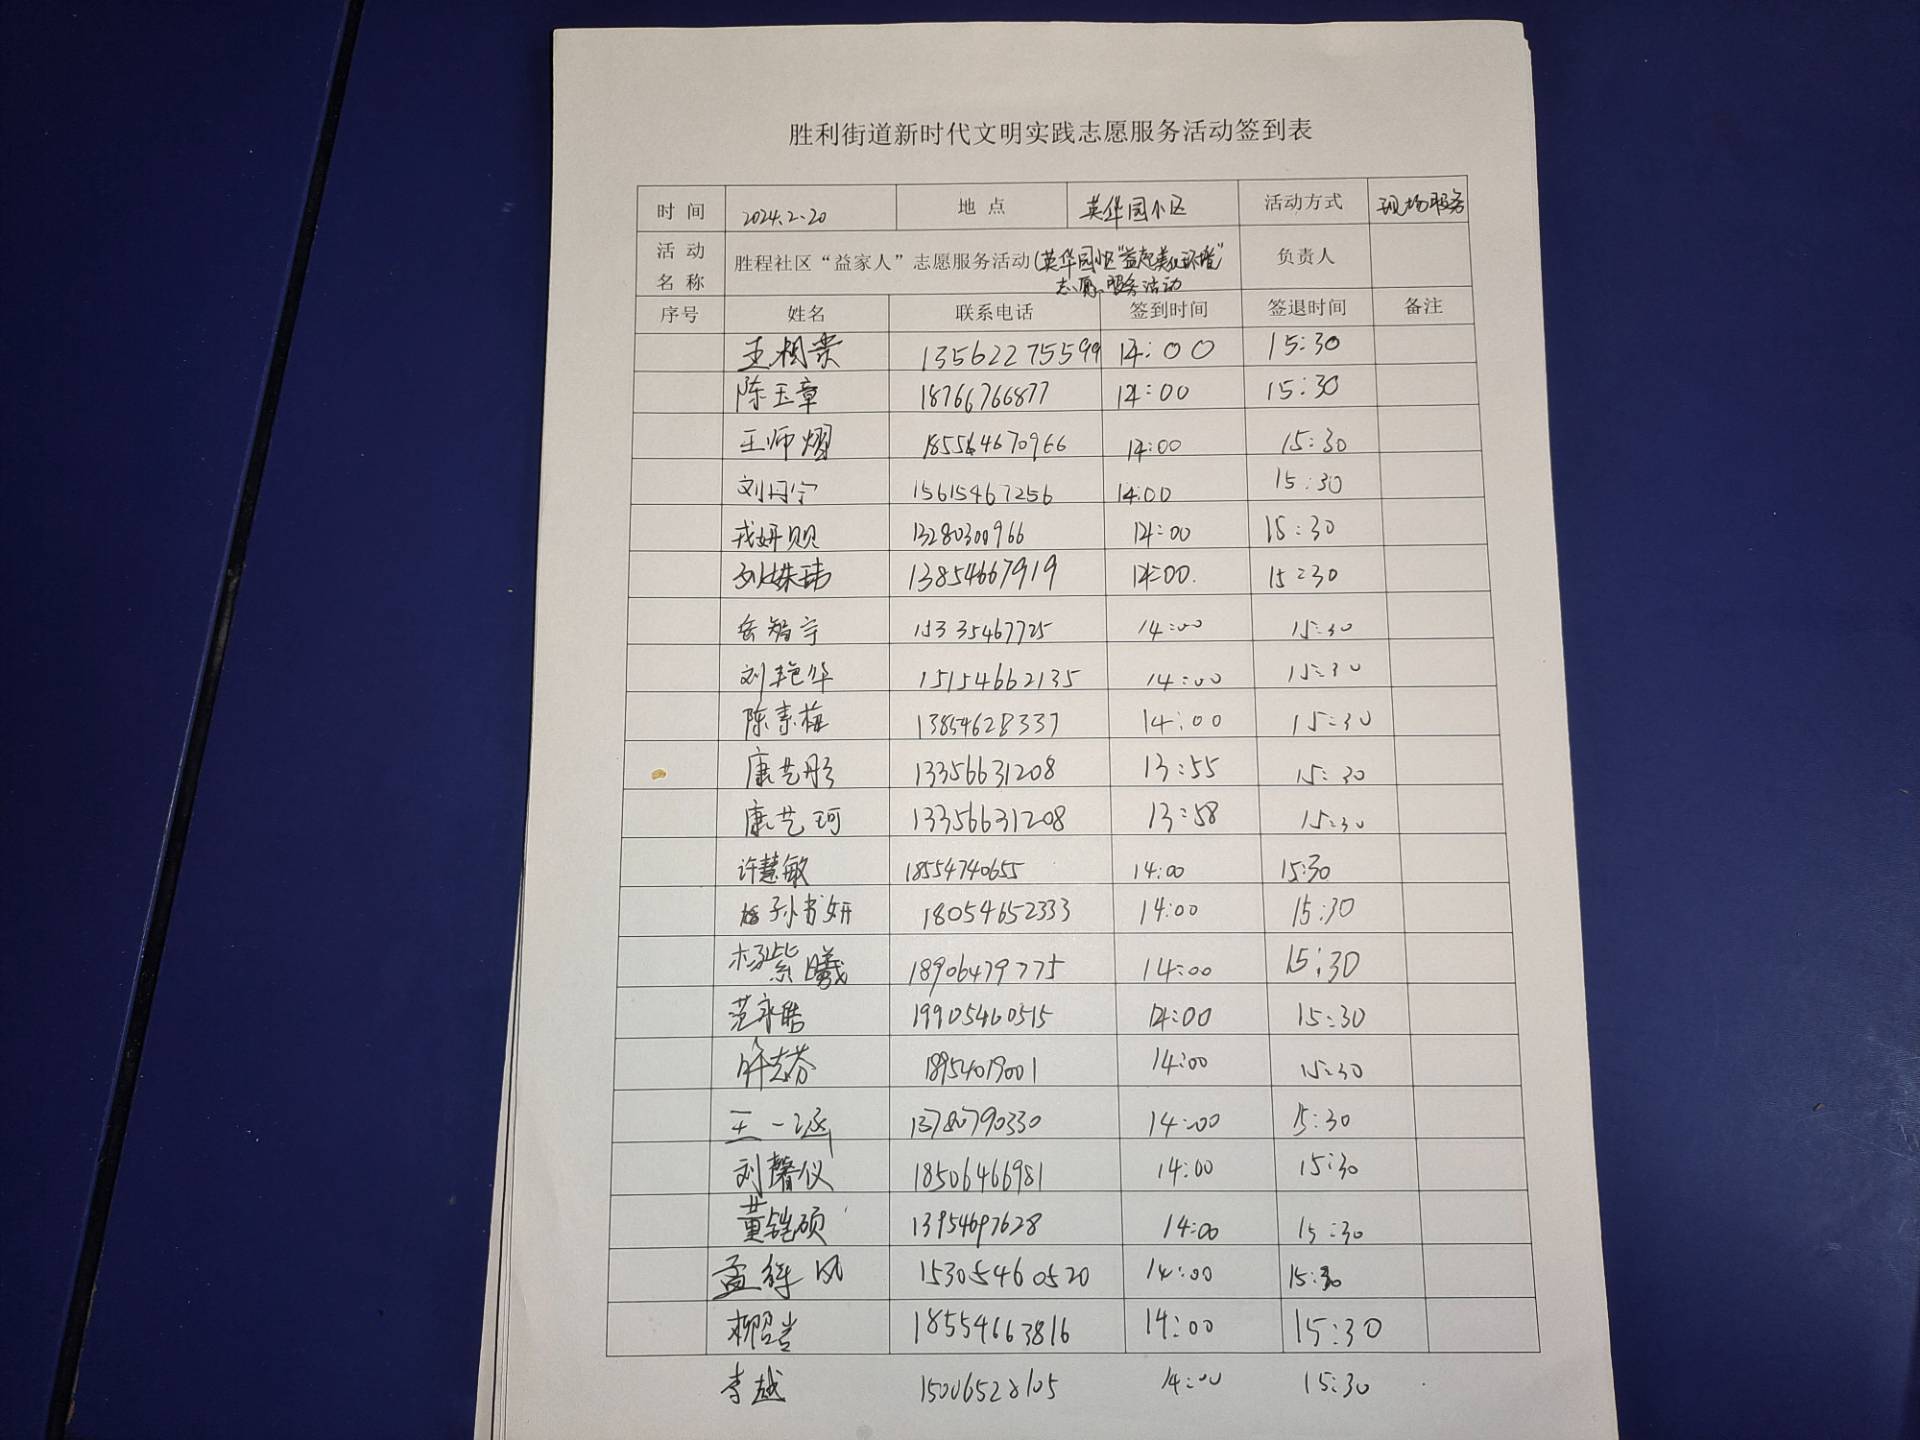 胜利街道新时代文明实践志愿服务活动签到表
时间 2024.2.20 地点 英华园小区 活动方式 现场服务
活动名称 胜程社区“益家人”志愿服务活动(英华园小区“益起美化环境”志愿服务活动 负责人
序号 姓名 联系电话 签到时间 签退时间 备注
王相贵 13562275599 14:00 15:30
陈玉章 18766766877 14:00 15:30
王师熠 185564670966 14:00 15:30
刘丹宁 15615467256 14:00 15:30
戎妍贝 13280300966 14:00 15:30
刘姝玮 13854667919 14:00. 15:30
岳智宇 15335467725 14:00 15:30
刘艳华 15154662135 14:00 15:30
陈素梅 13854628337 14:00 15:30
康艺彤 13356631208 13:55 15:30
康艺珂 13356631208 13:58 15:30
许慧敏 18554740655 14:00 15:30
孙书妍 18054652333 14:00 15:30
杨紫曦 18906479775 14:00 15:30
范永皓 19905460515 14:00 15:30
许志芬 18954019001 14:00 15:30
王一涵 13780790330 14:00 15:30
刘馨仪 18506466981 14:00 15:30
黄铠硕 13954697628 14:00 15:30
孟祥风 15305460520 14:00 15:30
柳 18554663816 14:00 15:30
李越 15006528105 14:00 15:30